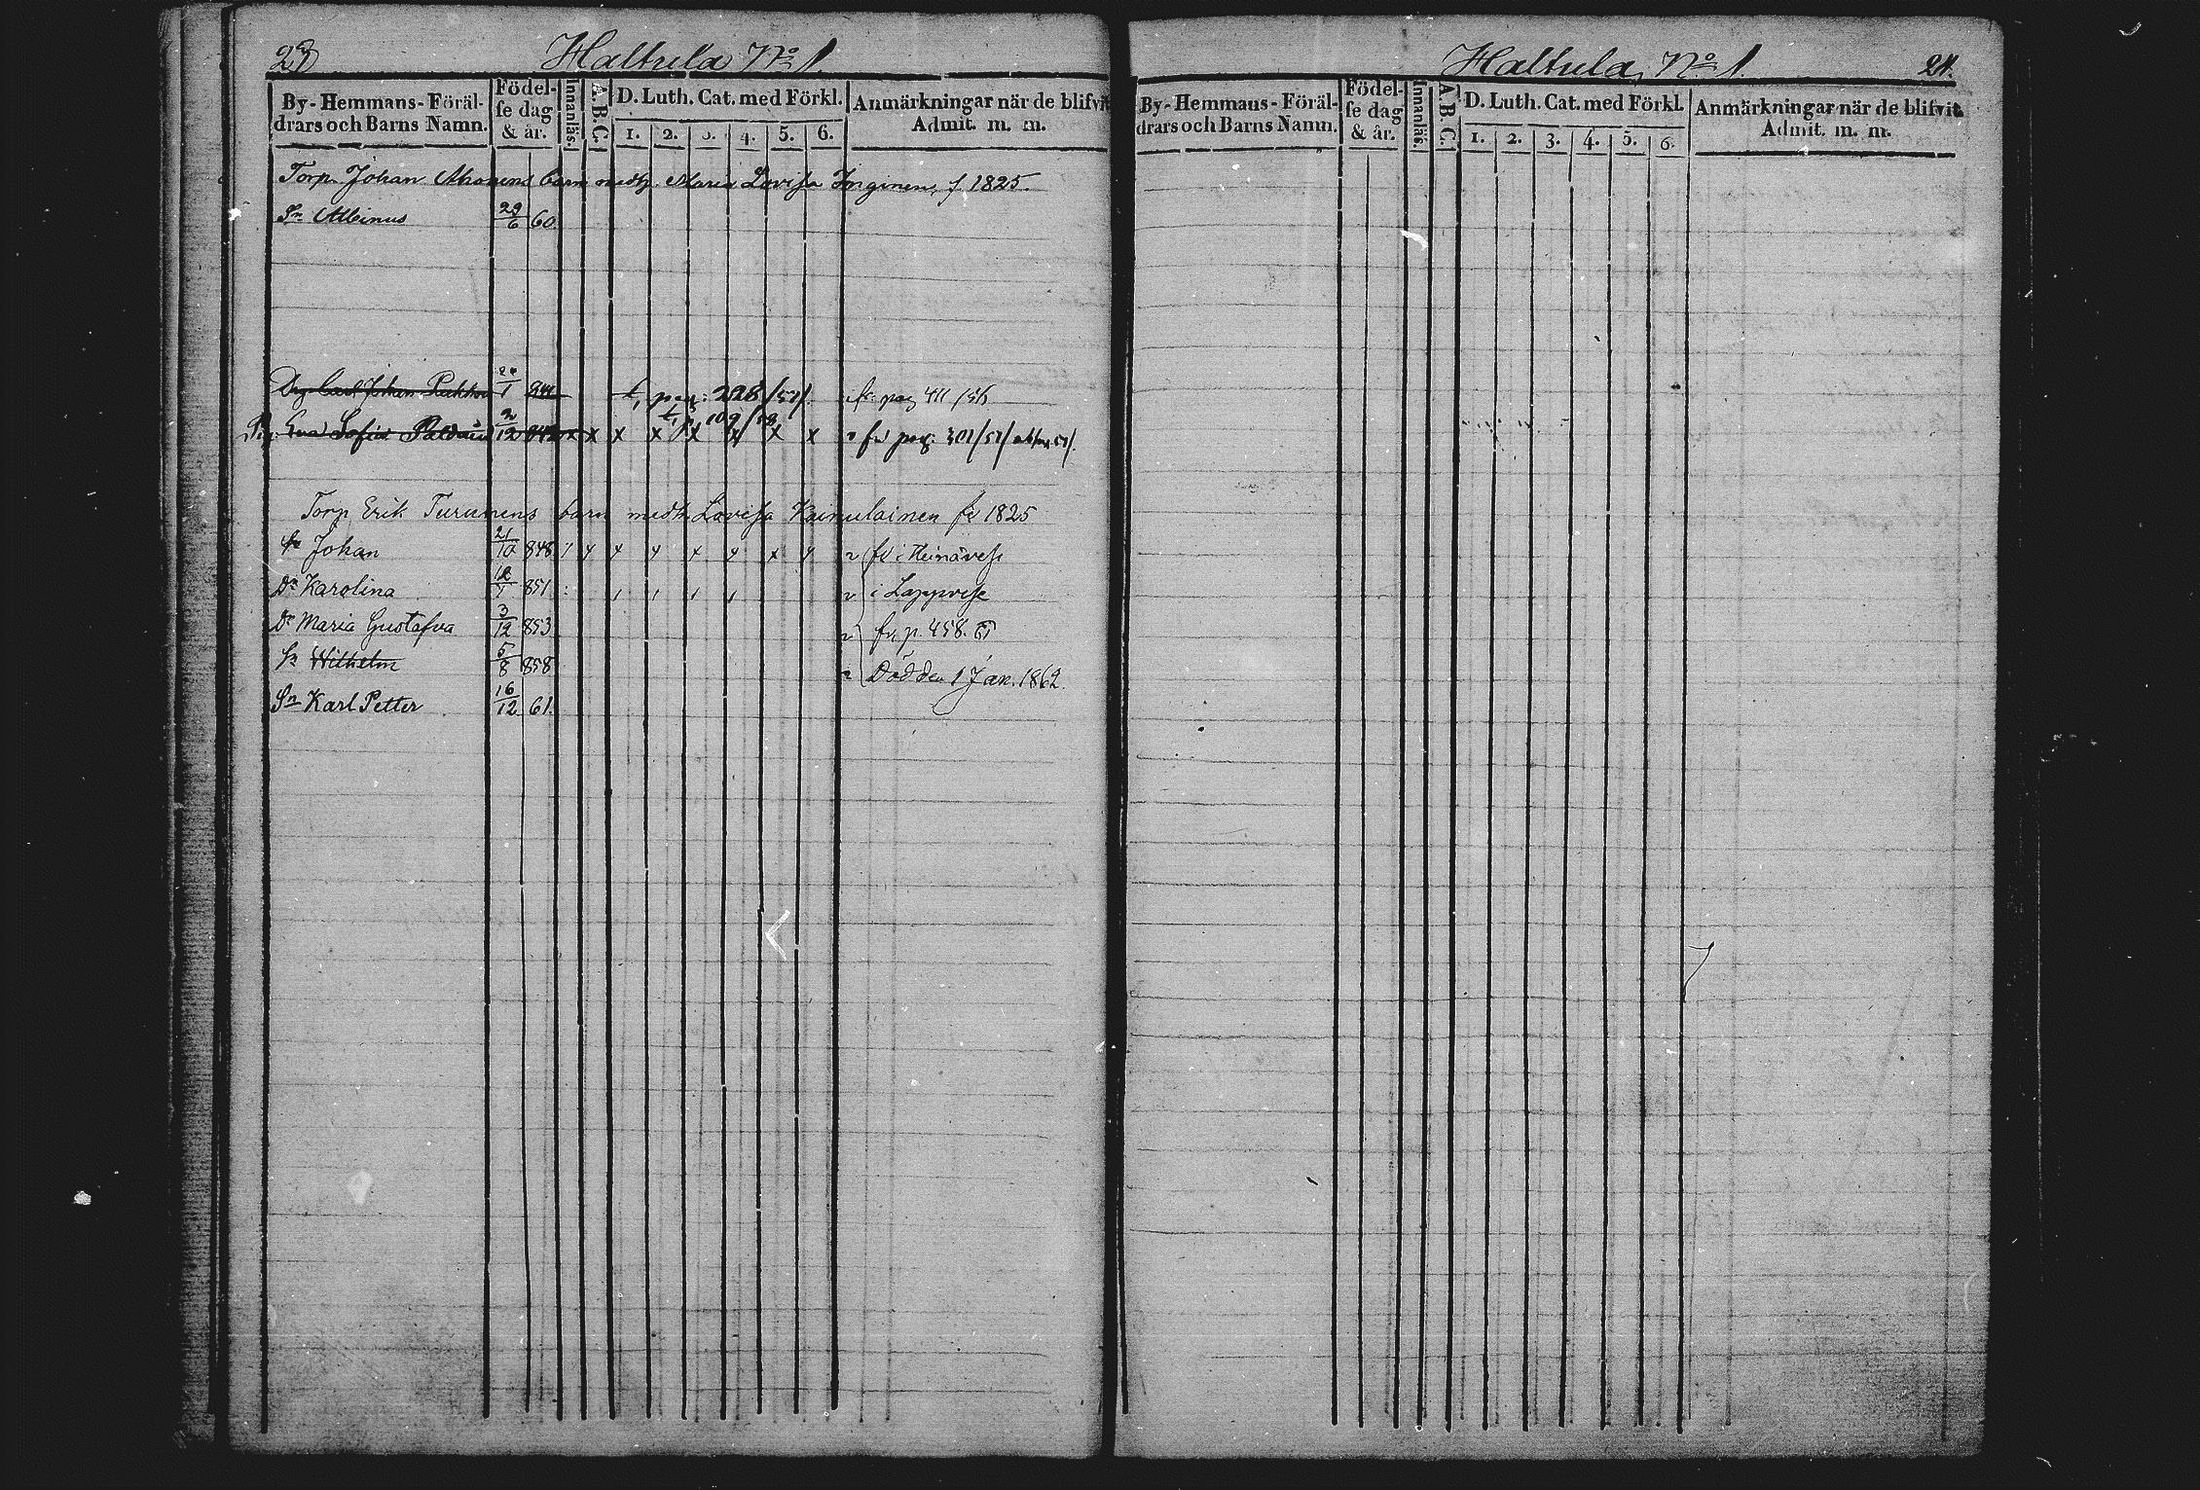 23 Haltula No 1.
By-Hemmans-Föräl-
drars och Barns Namn.
Födel-
se dag
& år.
Innanläs.
A.B.C.
D. Luth. Cat. med Förkl.
1. 2. 3. 4. 5. 6.
Anmärkningar när de blifvit
Admit. m. m.
Torp. Johan Ahonens barn medh. Maria Lovisa f 1825.
Sn Albinus 29/6 60
Johan 1 t, pag: 228/57/. fr. pag 411
t, p 109/59
Pig. Eva Sofia 2/12 842 x x x x x x x x fr pag. 301/57/
Torp Erik Turunens barn medh Lovisa Kainulainen fd 1825
Sn Johan 21/10 848 fd i Heinävesi
Dr Karolina 851 i Lappvesi
Dr Maria Gustafva 3/12 853 fr. p. 458.
Sn Wilhelm 5/8 858 Död den 1 Jan. 1862.
Sn Karl Petter 16/12 61.
Haltula, No 1. 24.
By-Hemmans-Föräl-
drars och Barns Namn.
Födel-
se dag
& år.
Innanläs.
A.B.C.
D. Luth. Cat. med Förkl.
1. 2. 3. 4. 5. 6.
Anmärkningar när de blifvit
Admit. m. m.